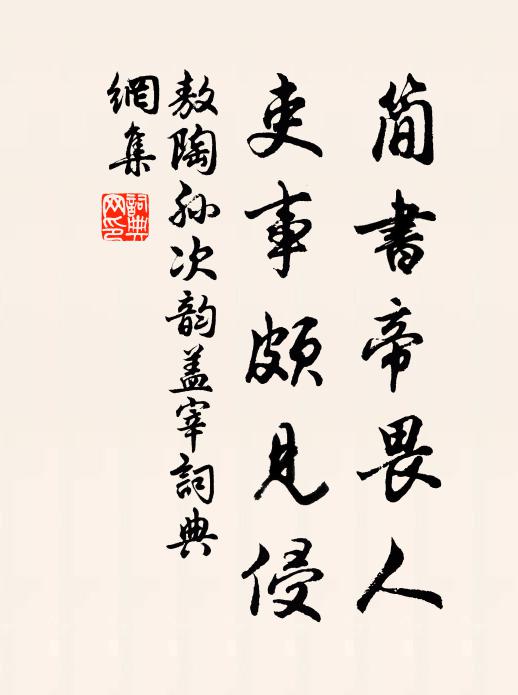 简書帝畏人
吏事頗見侵
敖陶孙次韵蓋宰詞典
網集
詞典
网印